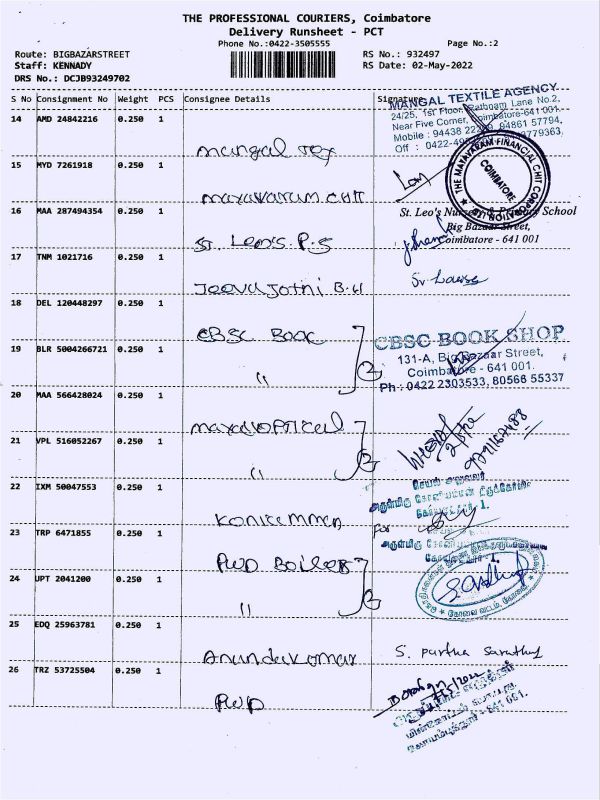 THE PROFESSIONAL COURIERS, Coimbatore
Delivery Runsheet - PCT
Phone No.:0422-3505555
Page No.:2
Route: BIGBAZARSTREET
RS No.: 932497
Staff: KENNADY
RS Date: 02-May-2022
DRS No.: DCJB93249702
S No Consignment No Weight PCS Consignee Details Signature
MANGAL TEXTILE AGENCY
24/25, 1st Floor, Ratnam Lane No.2,
Near Five Corner, Coimbatore-641001.
14 AMD 24842216 0.250 1 Mangal Tex
15 MYD 7261918 0.250 1 Mayavaram Chit
THE MAYAVARAM FINANCIAL CHIT CORPORATION
COIMBATORE
16 MAA 287494354 0.250 1 St. Leo's P.S
St. Leo's Nursery & Primary School
Big Bazaar Street,
Coimbatore - 641 001
17 TNM 1021716 0.250 1 Jeeva Jothi B.H
18 DEL 120448297 0.250 1 CBSC Book
CBSC BOOK SHOP
131-A, Big Bazaar Street,
Coimbatore - 641 001.
Ph: 0422 2303533, 80566 55337
19 BLR 5004266721 0.250 1 "
2
20 MAA 566428024 0.250 1
21 VPL 516052267 0.250 1 "
2
22 IXM 50047553 0.250 1 Koniamman
for
23 TRP 6471855 0.250 1 PWD Boiler
24 UPT 2041200 0.250 1 "
2
25 EDQ 25963781 0.250 1 Anandakumar
S. Partha Sarathy
26 TRZ 53725504 0.250 1 PWD